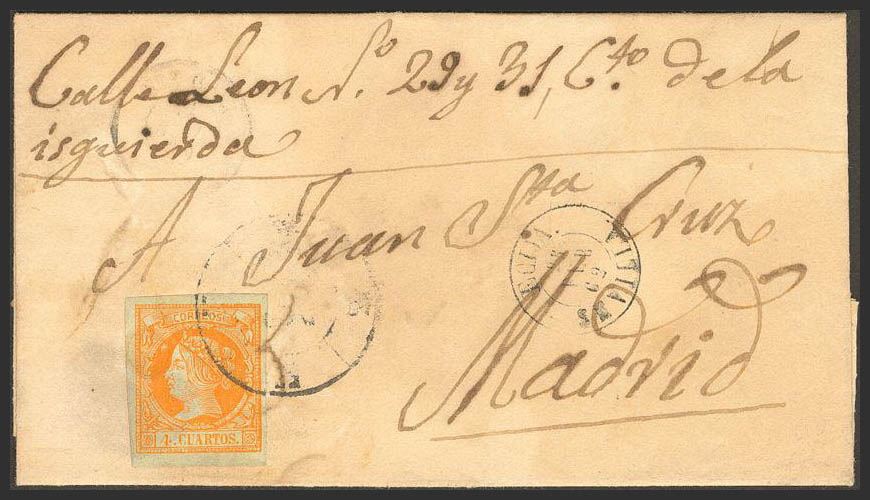 Calle Leon N.º 29 y 31, C.to de la
isquierda
A Juan Sta Cruz
Madrid
CORREOS
4 CUARTOS.